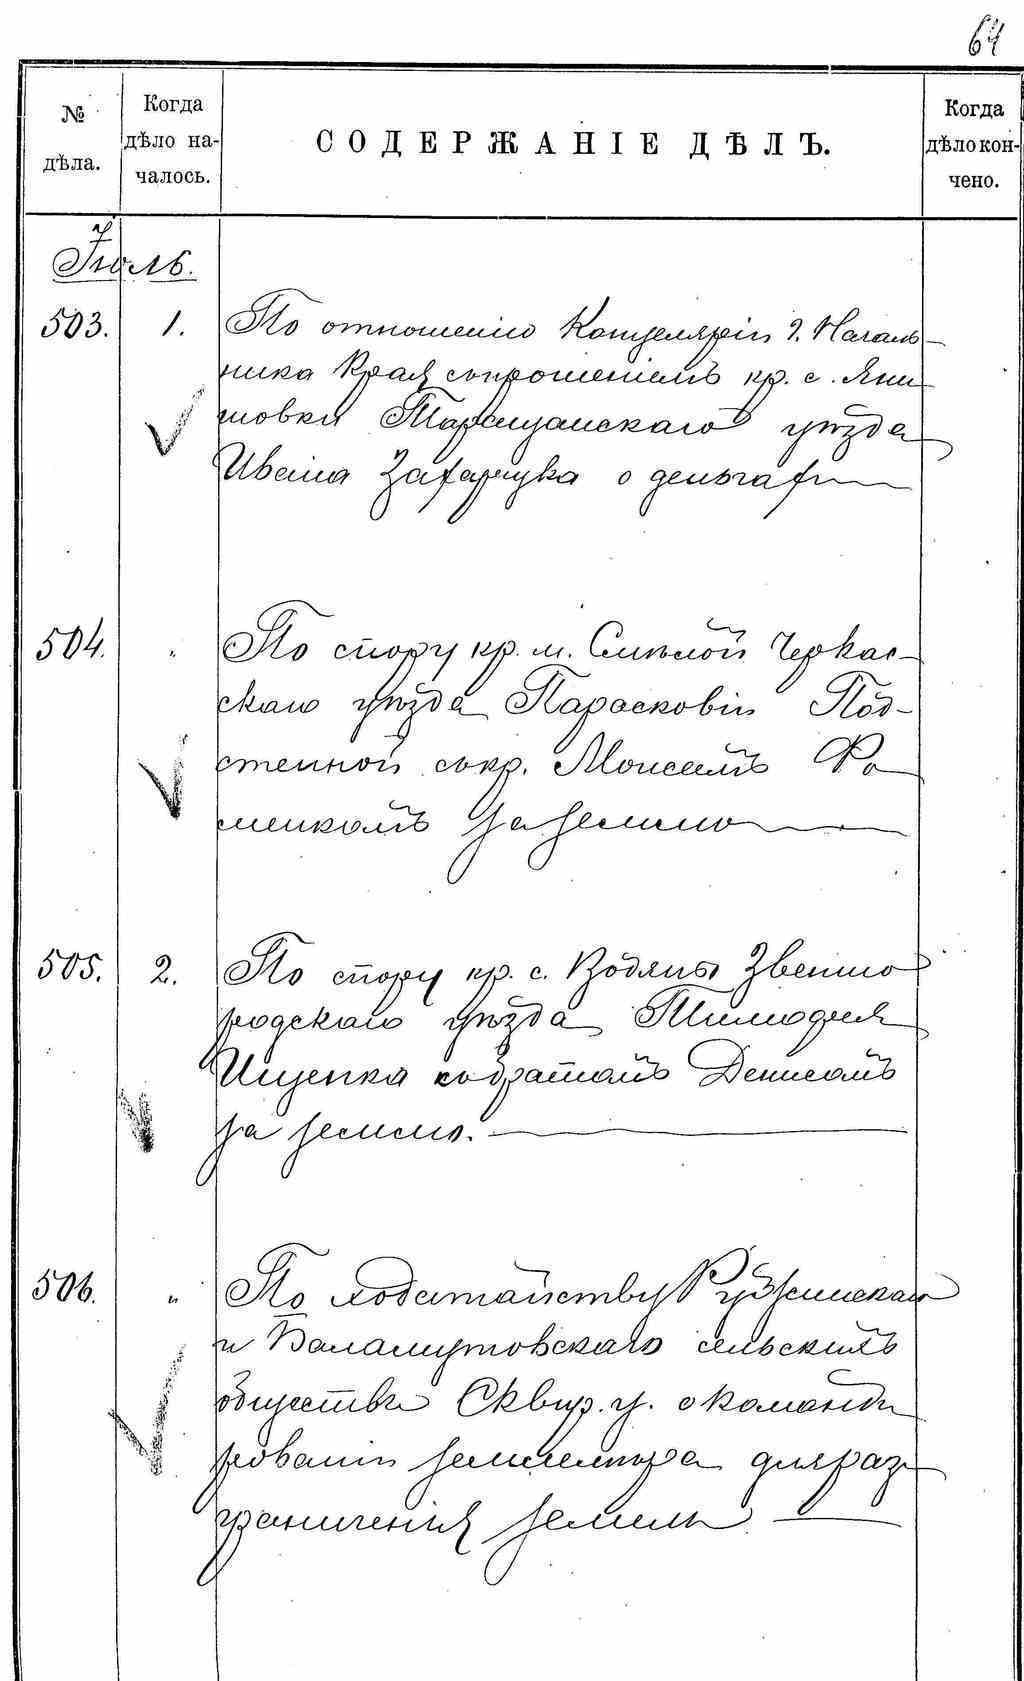 64
№ дѣла.
Когда дѣло началось.
СОДЕРЖАНІЕ ДѢЛЪ.
Когда дѣло кончено.
Іюль.
503. 1. По отношенію Канцеляріи г. Началь-
ника Края спрошеніемъ кр. с. Яни
шовки Таращанскаго уѣзда
Ивана Захарчука о деньгахъ
504. " По спору кр. м. Смѣлой Черкас-
скаго уѣзда Парасковіи Под-
стенной съ кр. Моисеемъ Фо
менкомъ за землю
505. 2. По спору кр. с. Водяны Звениго
родскаго уѣзда Тимофея
Ищенка съ братомъ Денисомъ
за землю.
506. " По ходатайству Ружинскаго
и Баламутовскаго сельскихъ
обществъ Сквир. у. о команди
рованіи землемѣра для раз
граниченія земель